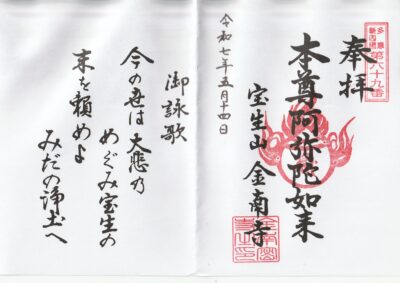 多摩
新四国
第六十九番
奉拝
本尊阿弥陀如来
宝生山 金南寺
令和七年五月十四日
御詠歌
今の世は 大悲乃
めぐみ宝生の
末を頼めよ
みだの浄土へ